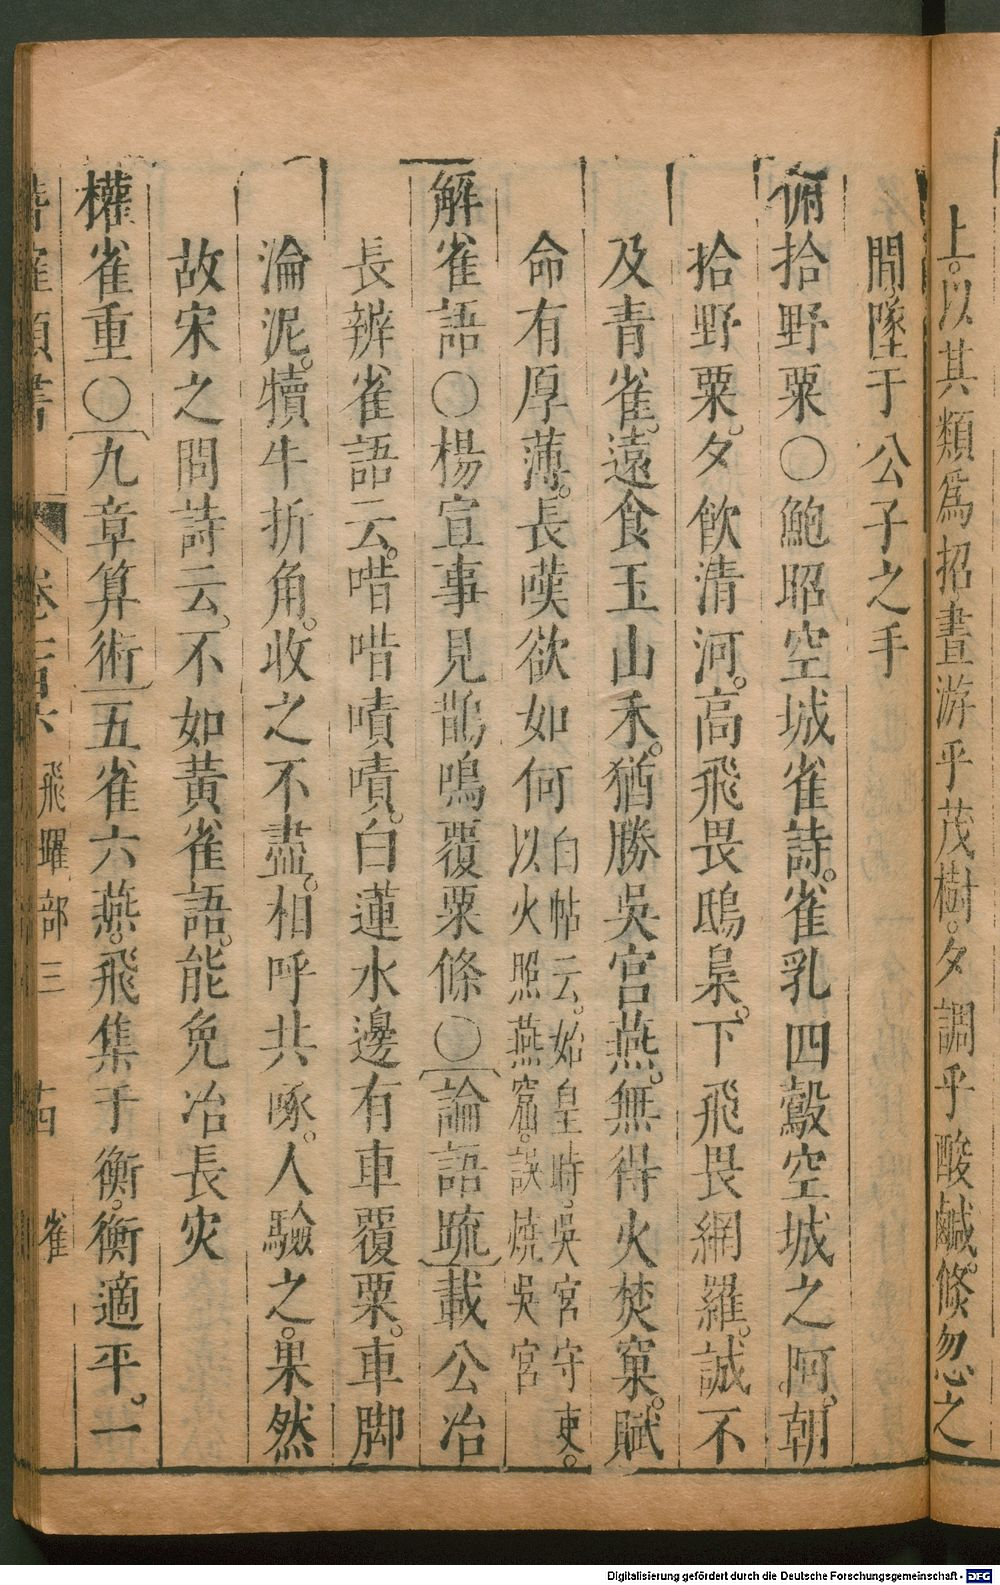 上。以其類爲招晝游乎茂樹。夕調乎酸鹹。倏忽之
間墜于公子之手
俯拾野粟〇鮑昭空城雀詩。雀乳四鷇空城之阿。朝
拾野粟。夕飲清河。高飛畏鴟梟。下飛畏網羅。誠不
及青雀。遠食玉山禾。猶勝吳宮燕。無得火焚窠。賦
命有厚薄。長嘆欲如何白帖云。始皇時。吳宮守吏。以火照燕窟。誤燒吳宮
解雀語〇楊宣事見鵲鳴覆粟條〇論語疏載公冶
長辨雀語云。喈喈嘖嘖。白蓮水邊有車覆粟。車脚
淪泥。犢牛折角。收之不盡。相呼共啄。人驗之。果然
故宋之問詩云。不如黃雀語。能免冶長灾
權雀重〇九章算術五雀六燕。飛集于衡。衡適平。一
類書 卷 飛躍部三 十四 雀
Digitalisierung gefördert durch die Deutsche Forschungsgemeinschaft - DFG